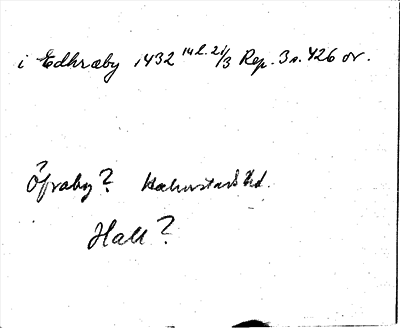 i Edhræby 1432 14 l. 21/3 Rep. 3 s. 426 or.
Öfraby? Halmstads hd.
Hall?